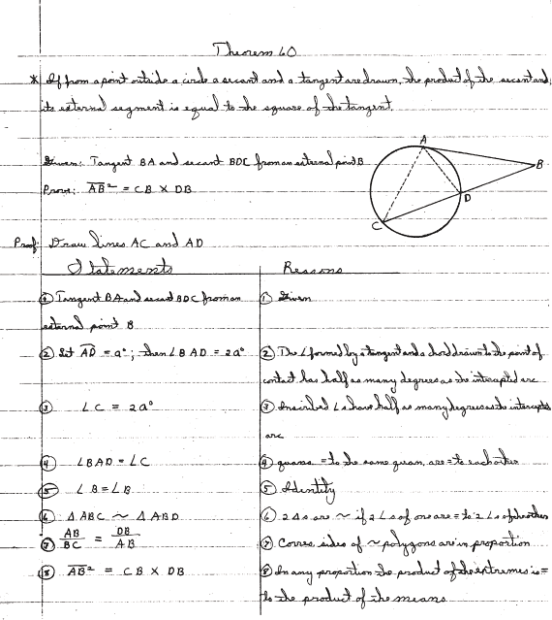 Theorem 60
* If from a point outside a circle a secant and a tangent are drawn, the product of the secant and
its external segment is equal to the square of the tangent.
Given: Tangent BA and secant BDC from an external point B
Prove: AB² = CB × DB
A
B
D
C
Proof: Draw lines AC and AD
Statements
Reasons
① Tangent BA and secant BDC from an
external point B
① Given
② Let AD = a°; then ∠BAD = 2a°
② The ∠ formed by a tangent and a chord drawn to the point of
contact has half as many degrees as the intercepted arc
③ ∠C = 2a°
③ Inscribed ∠s have half as many degrees as the intercepted
arc
④ ∠BAD = ∠C
④ quans. = to the same quan. are = to each other
⑤ ∠B = ∠B
⑤ Identity
⑥ △ABC ~ △ABD
⑥ 2 △s are ~ if 2 ∠s of one are = to 2 ∠s of the other
⑦ AB/BC = DB/AB
⑦ Corres. sides of ~ polygons are in proportion
⑧ AB² = CB × DB
⑧ In any proportion the product of the extremes is =
to the product of the means